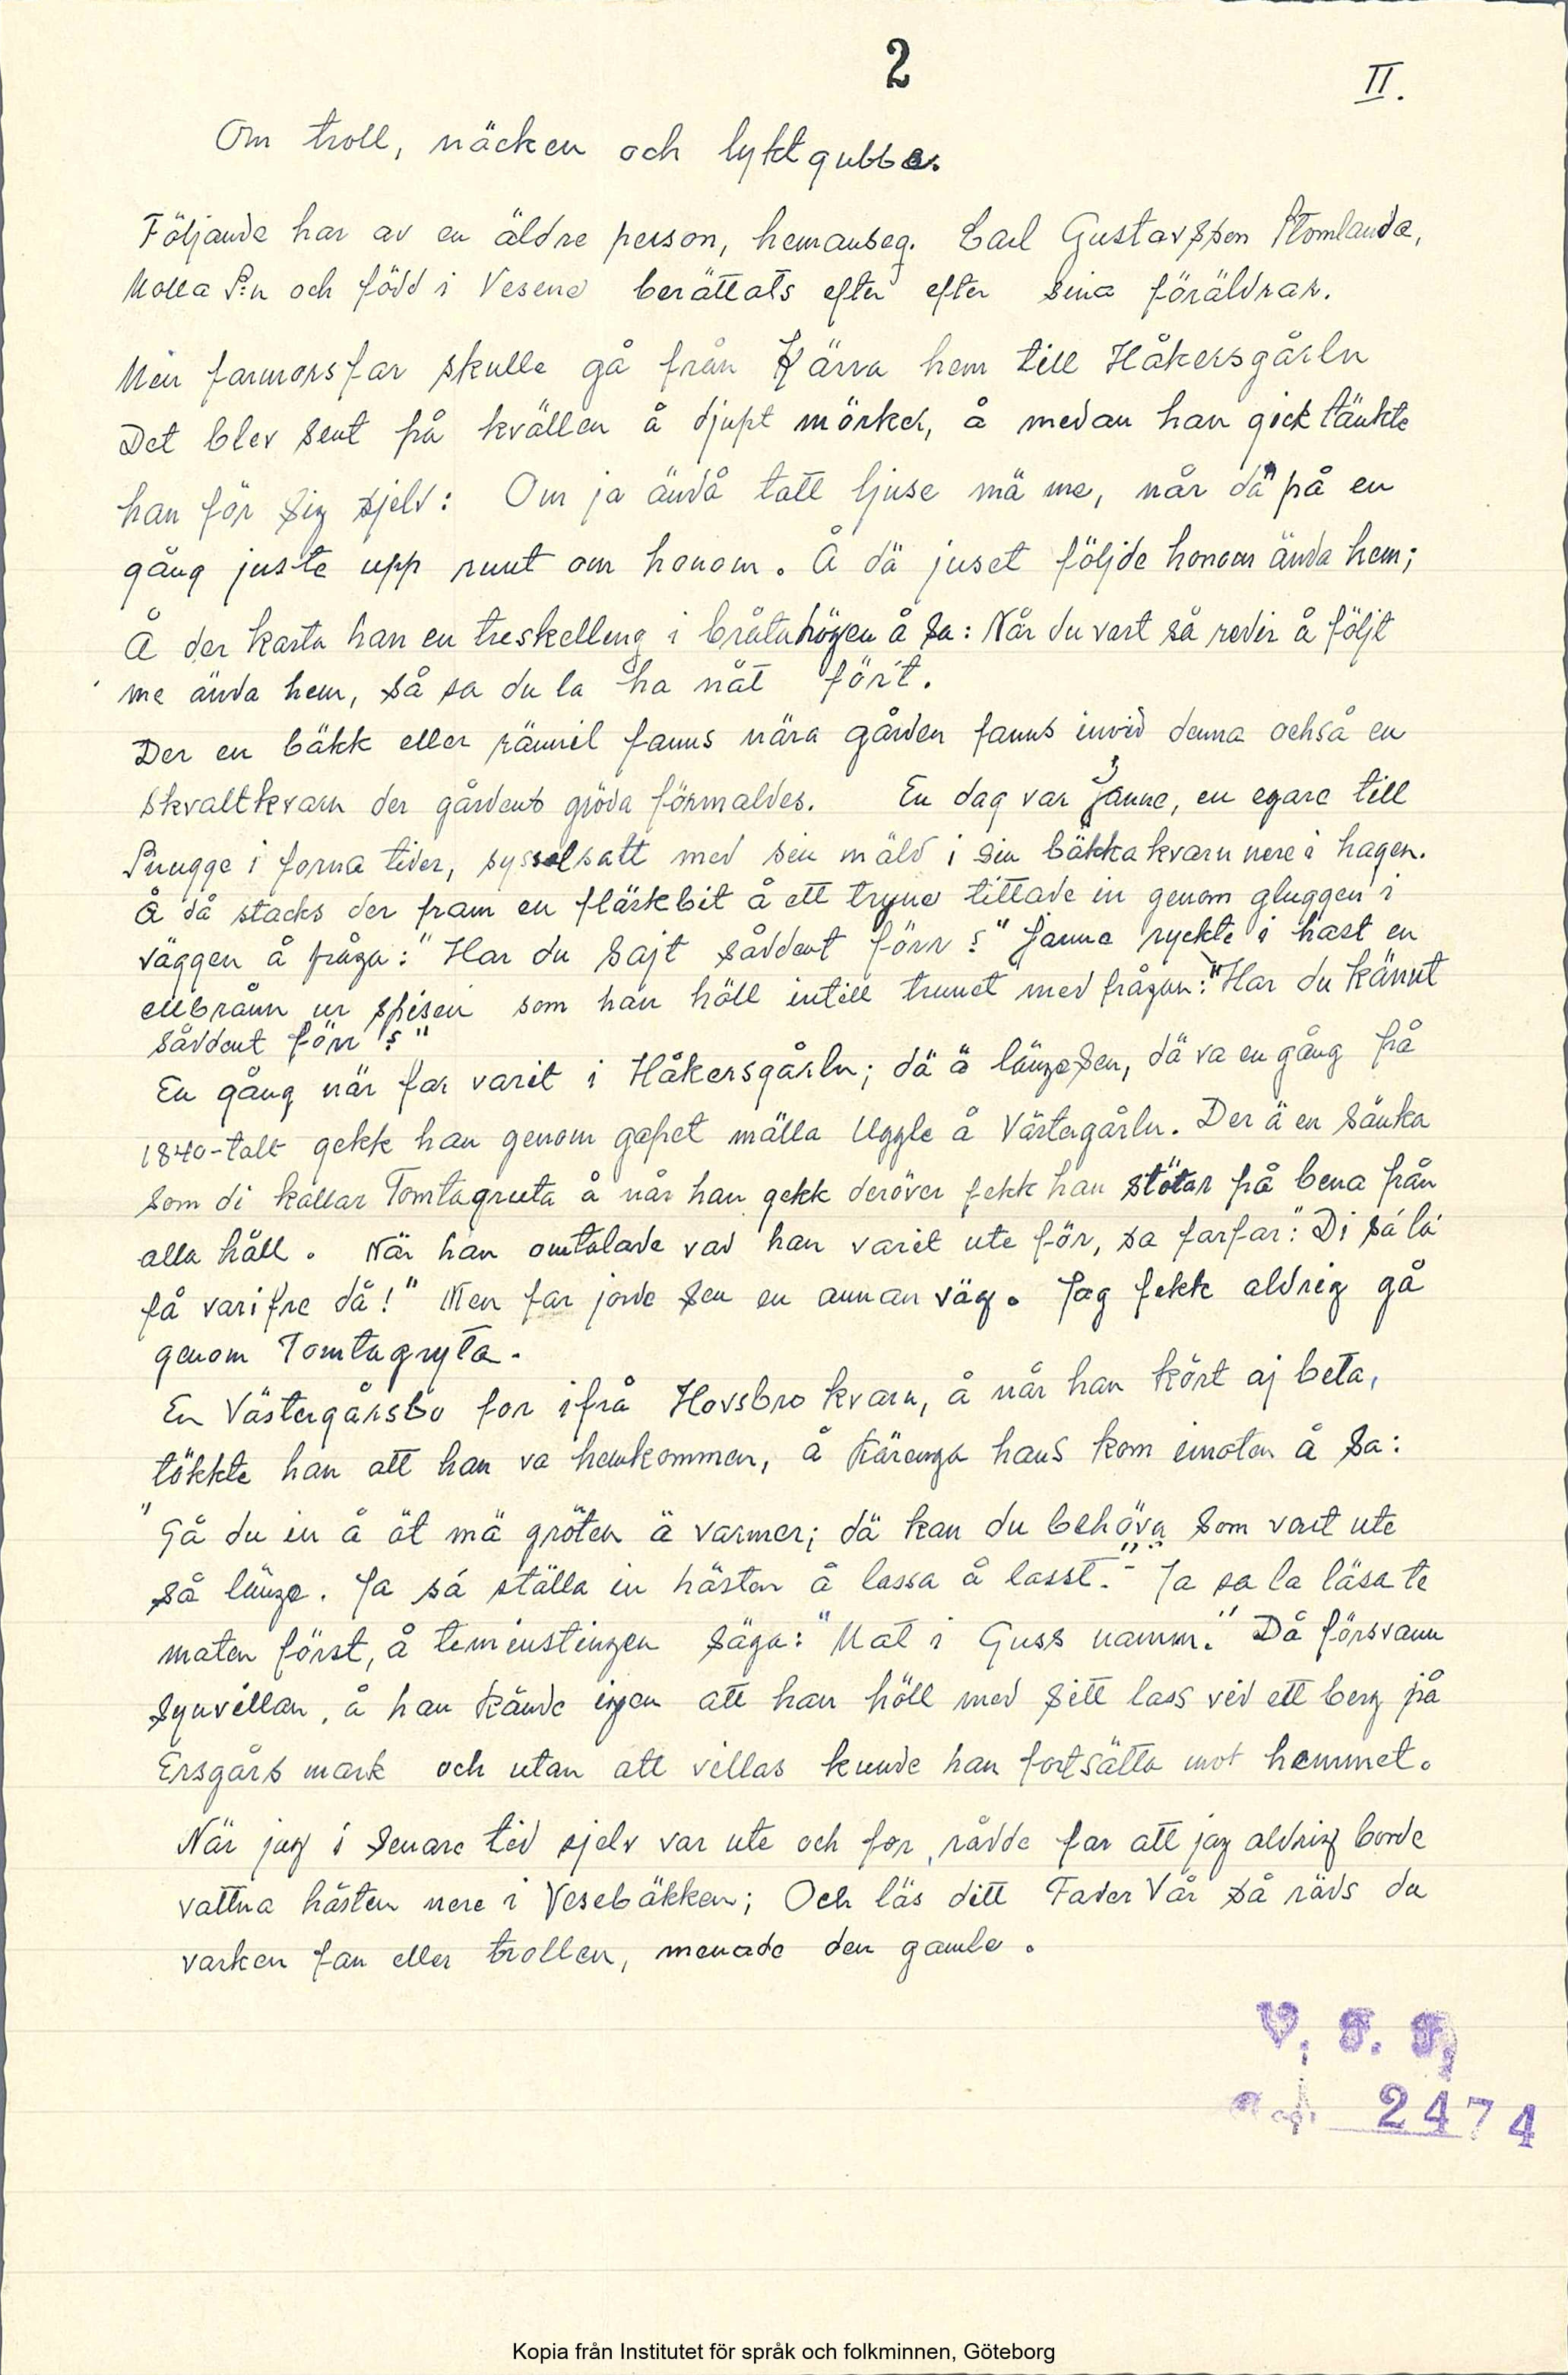 2
II.
Om troll, näcken och lyktgubbe.
Följande har av en äldre person, hemanseg. Carl Gustavsson Stomlanda,
Molla S:n och född i Vesene berättats efter efter sina föräldrar.
Min farmorsfar skulle gå från Kärra hem till Håkersgårln
Det blev sent på kvällen å djupt mörker, å medan han gick tänkte
han för sig sjelv: Om ja ändå tatt ljuse mä me, når dä på en
gång juste upp runt om honom. Å dä juset följde honom ända hem;
Å der kasta han en treskelleng i bråtahögen å sa: Når du vart så redir å följt
me ända hem, så sa du la ha nåt för't.
Der en bäkk eller rännil fanns nära gården fanns invid denna också en
skvaltkvarn der gårdens gröda förmaldes. En dag var Janne, en egare till
Snugge i forna tider, sysselsatt med sin mäld i sin bäkkakvarn nere i hagen.
Å då stacks der fram en fläskbit å ett tryne tittade in genom gluggen i
väggen å fråga: "Har du sajt såddent förr?" Janne ryckte i hast en
ellbrånn ur spisen som han höll intill trynet med frågan: "Har du kännt
såddent förr?"
En gång när far varit i Håkersgårln; dä ä länge sen, dä va en gång på
1840-talt gekk han genom gapet mälla Uggle å Västergårln. Der ä en sänka
som di kallar Tomtagruta å når han gekk deröver fekk han stötar på bena från
alla håll. När han omtalade vad han varit ute för, sa farfar: "Di sá la
få varifre då!" Men far jorde sen en annan väg. Jag fekk aldrig gå
genom Tomtagryta.
En Västergårsbo for ifrå Hovsbro kvarn, å når han kört aj beta,
tökkte han att han va hemkommen, å käringa hans kom emoten å sa:
"Gå du in å ät mä gröten ä varmer; dä kan du behöva som vart ute
så länge. Ja sá ställa in hästen å lassa å lasst." - "Ja sa la läsa te
maten först, å teminstingen säga: "Mat i Guss namn." Då försvann
synvillan, å han kände igen att han höll med sitt lass vid ett berg på
Ersgårs mark och utan att villas kunde han fortsätta mot hemmet.
När jag i senare tid sjelv var ute och for, rådde far att jag aldrig borde
vattna hästen nere i Vesebäkken; Och läs ditt Fader Vår så räds du
varken fan eller trollen, menade den gamle.
V. F. F.
acc. 2474
Kopia från Institutet för språk och folkminnen, Göteborg